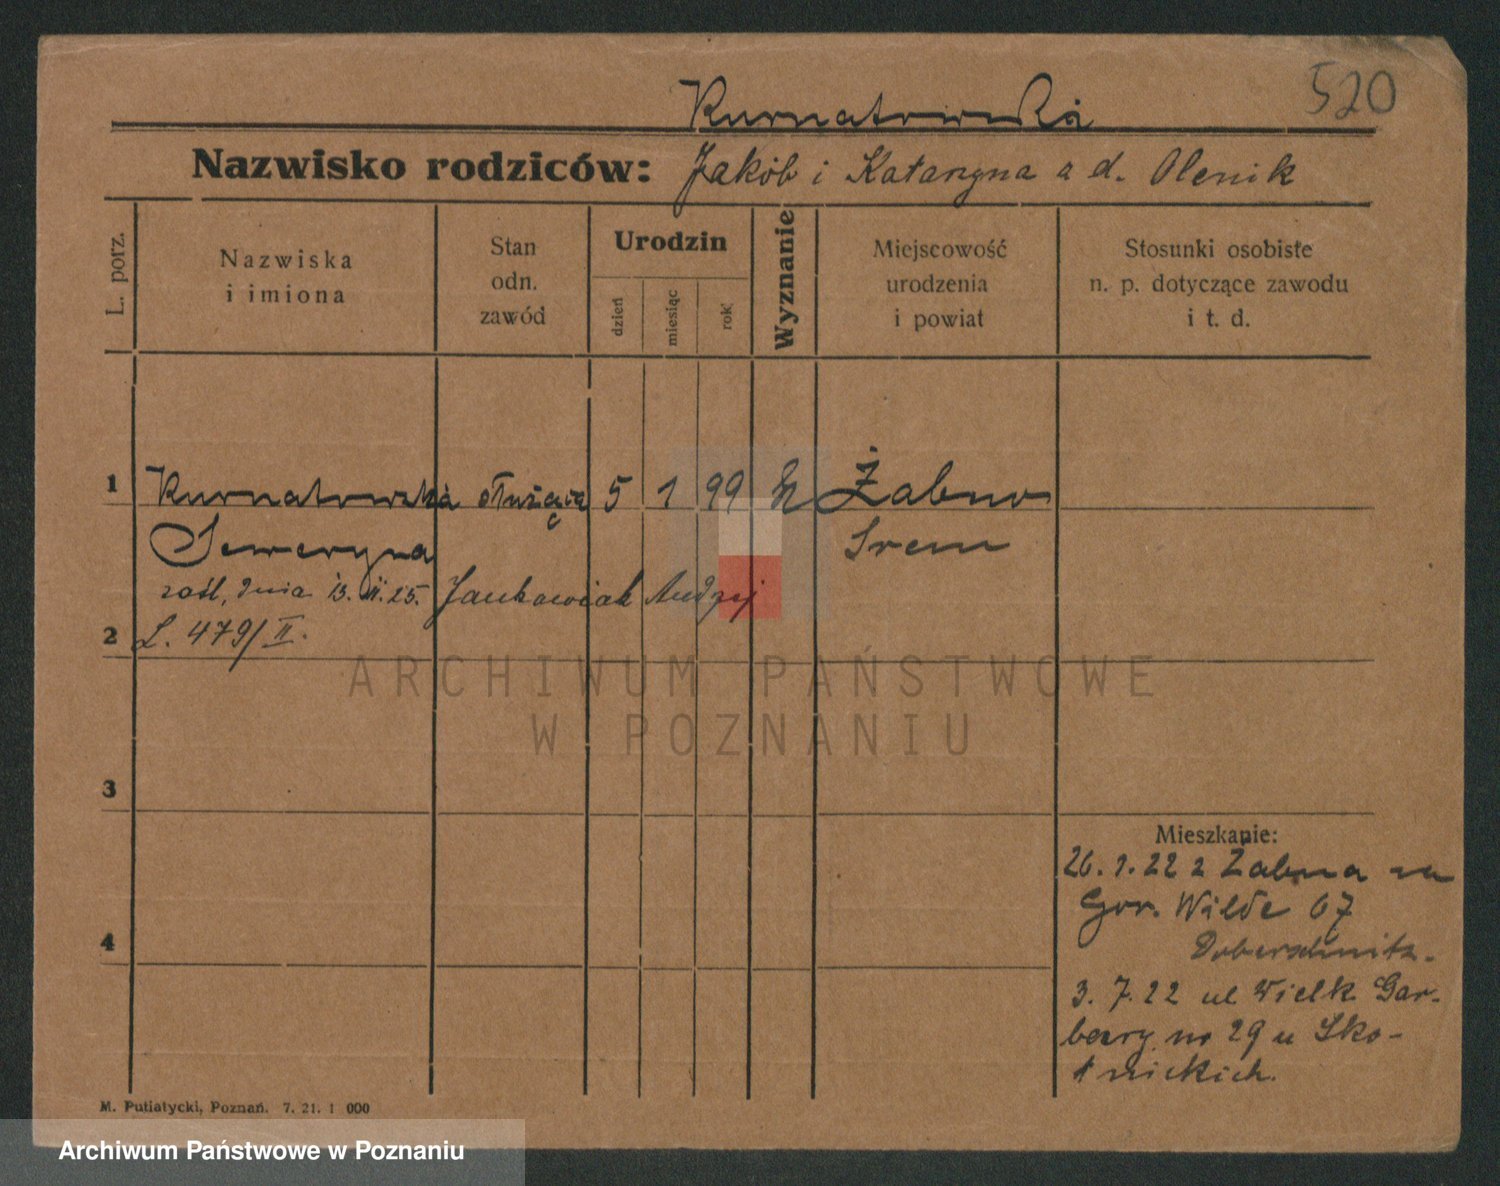 520
Kurnatowska
Nazwisko rodziców: Jakób i Katarzyna z d. Olenik
L. porz.
Nazwiska
i imiona
Stan
odn.
zawód
Urodzin
dzień
miesiąc
rok
Wyznanie
Miejscowość
urodzenia
i powiat
Stosunki osobiste
n. p. dotyczące zawodu
i t. d.
1 Kurnatowska służąca 5 1 99 Żabno
Seweryna Śrem
zaśl. dnia 13. II. 25. Jankowiak Andrzej
2 L. 479/II.
3
4
Mieszkanie:
26. 1. 22 z Żabna na
Gór. Wildę 67
3. 7. 22 ul Wielk. Gar-
bary no 29 u Sko-
tnickich.
M. Putiatycki, Poznań. 7. 21. 1 000
ARCHIWUM PAŃSTWOWE
W POZNANIU
Archiwum Państwowe w Poznaniu